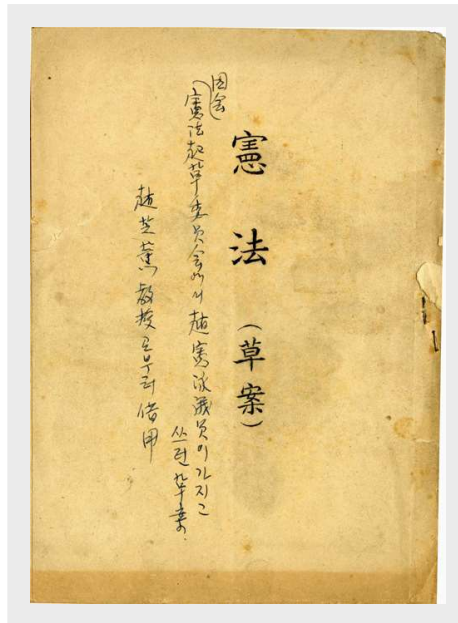 憲法(草案)
国会
憲法起草委员会에서 趙憲泳議员이 가지고
쓰던 草案.
趙芝薫 敎授로부터 借用